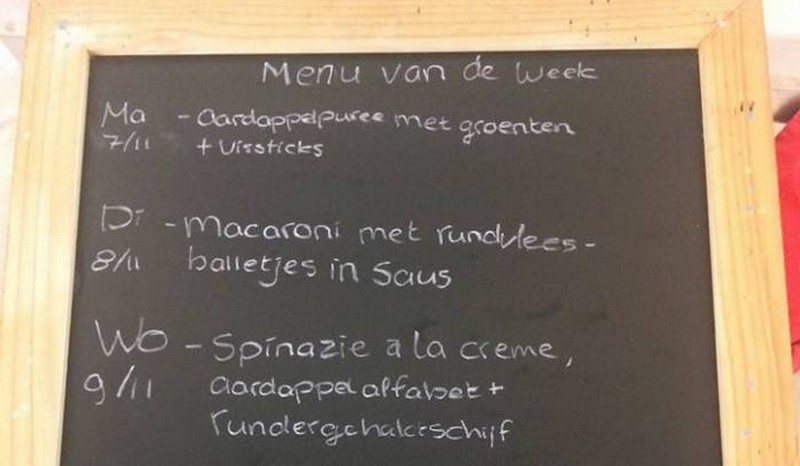 Menu van de week
Ma - aardappelpuree met groenten
7/11 + vissticks
Di - Macaroni met rundvlees-
8/11 balletjes in saus
Wo - Spinazie a la creme,
9/11 aardappelalfabet +
rundergehaktschijf